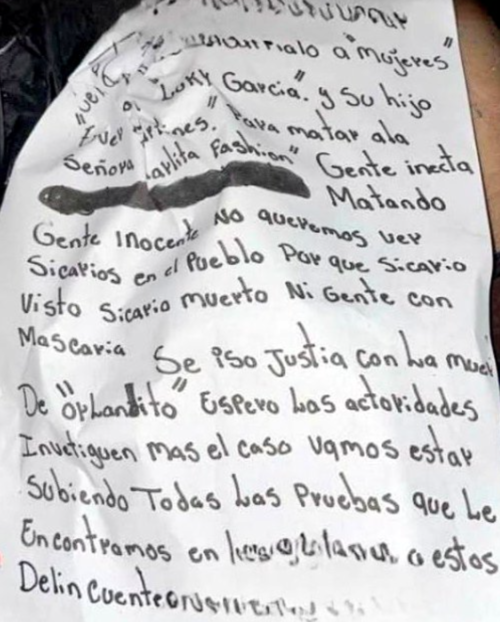 a "Mujeres"
"Luky Garcia". y Su hijo
Para matar ala
Señora Fashion" Gente inecta
Matando
Gente Inocente No queremos ver
Sicarios en el Pueblo Por que Sicario
Visto Sicario muerto Ni Gente con
Mascaria Se iso Justia con La
De "Orlandito" Espero Las actoridades
Invetiguen mas el caso Vamos estar
Subiendo Todas Las Pruebas que Le
Encontramos en a estos
Delincuente